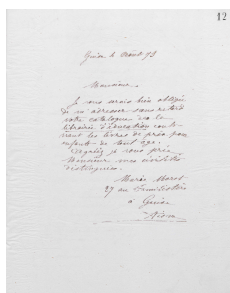 12
Guise le août 93
Monsieur,
Je vous serais bien obligée
de m'adresser sans retard
votre catalogue de la
librairie d'éducation conte
nant les livres de prix pour
enfants de tout âge.
Agréez je vous prie
Monsieur mes civilités
distinguées.
Marie Moret
27 au Familistère
à Guise
Aisne